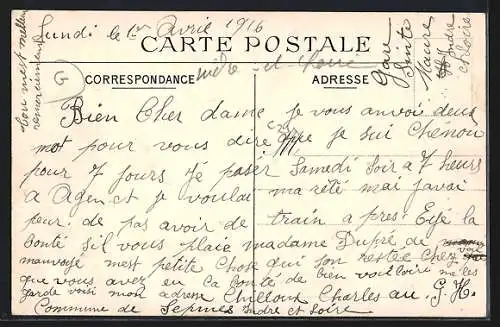 Lundi le 1er Avril 1916
CARTE POSTALE
CORRESPONDANCE
ADRESSE
Gare
Sainte
Maure
Indre et Loire
Indre et Loire
bon meilleur
remerciement
G
Bien Cher dame je vous anvoi deus
mot pour vous dire que je sui Chénou
pour 7 jours Je paser Samedi Soir a 7 heurs
a Agen et je voulai ma rété mai javai
peur de pas avoir de train a pres Eyé la
bonté sil vous place madame Dupré de
mauvoye mest petite Chose qui son restée Chez
que vous aver eu la bonté de bien vouloire me les
garde voisi mon adrese Chilloux Charles au G. H.
Commune de Sepmes Indre et Loire